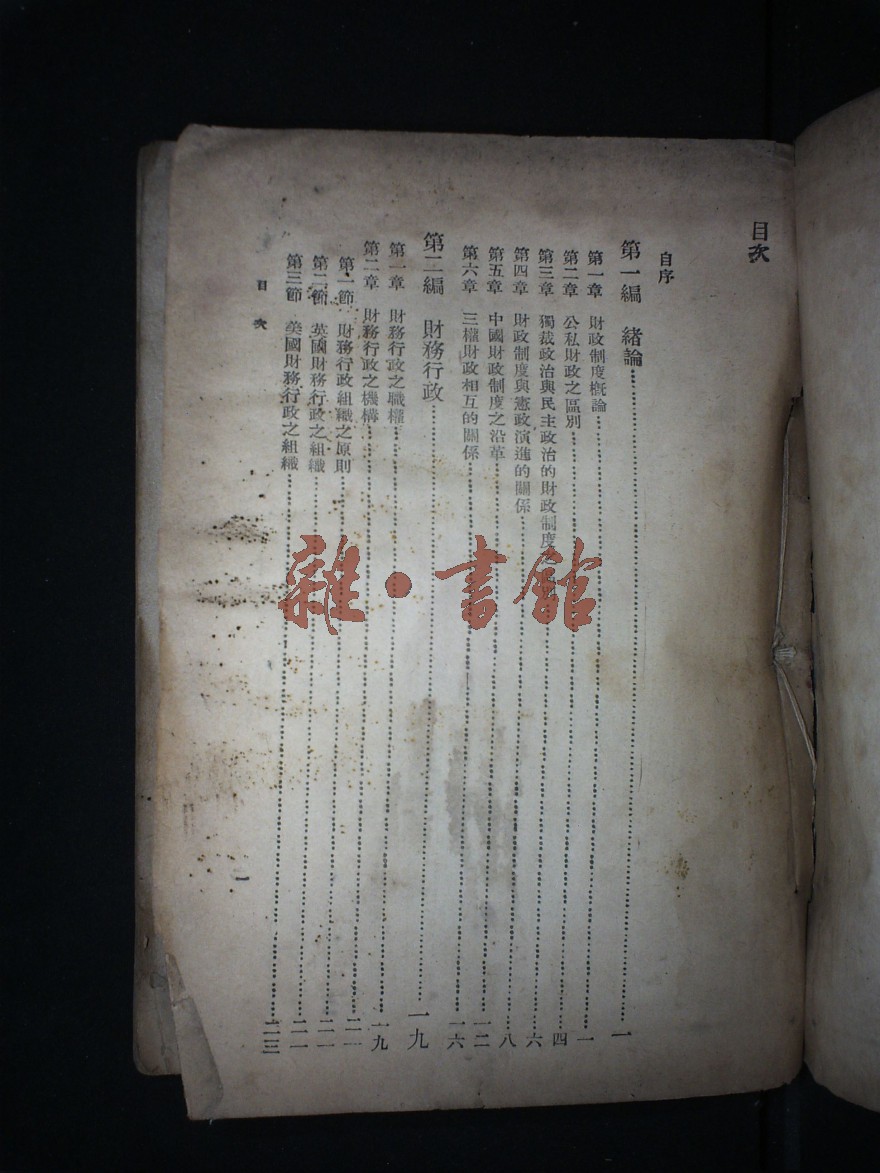 目次
自序
第一編 緒論……一
第一章 財政制度概論……一
第二章 公私財政之區別……四
第三章 獨裁政治與民主政治的財政制度……六
第四章 財政制度與憲政演進的關係……八
第五章 中國財政制度之沿革……一二
第六章 三權財政相互的關係……一六
第二編 財務行政……一九
第一章 財務行政之職權……一九
第二章 財務行政之機構……二一
第一節 財務行政組織之原則……二一
第二節 英國財務行政之組織……二一
第三節 美國財務行政之組織……二三
目次
一
雜·書館